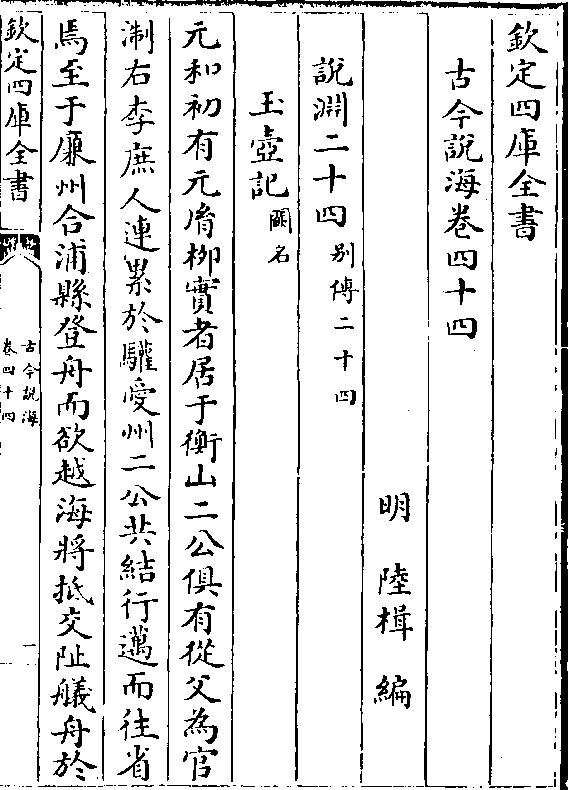 欽定四庫全書
古今說海卷四十四
明 陸楫 編
說淵二十四 别傳二十四
玉壺記 闕名
元和初有元脩栁實者居于衡山二公俱有從父為官
淛右李庶人連累於驩愛州二公共結行邁而往省
焉至于廉州合浦縣登舟而欲越海將抵交阯艤舟於
欽定四庫全書
古今說海
卷四十四
一